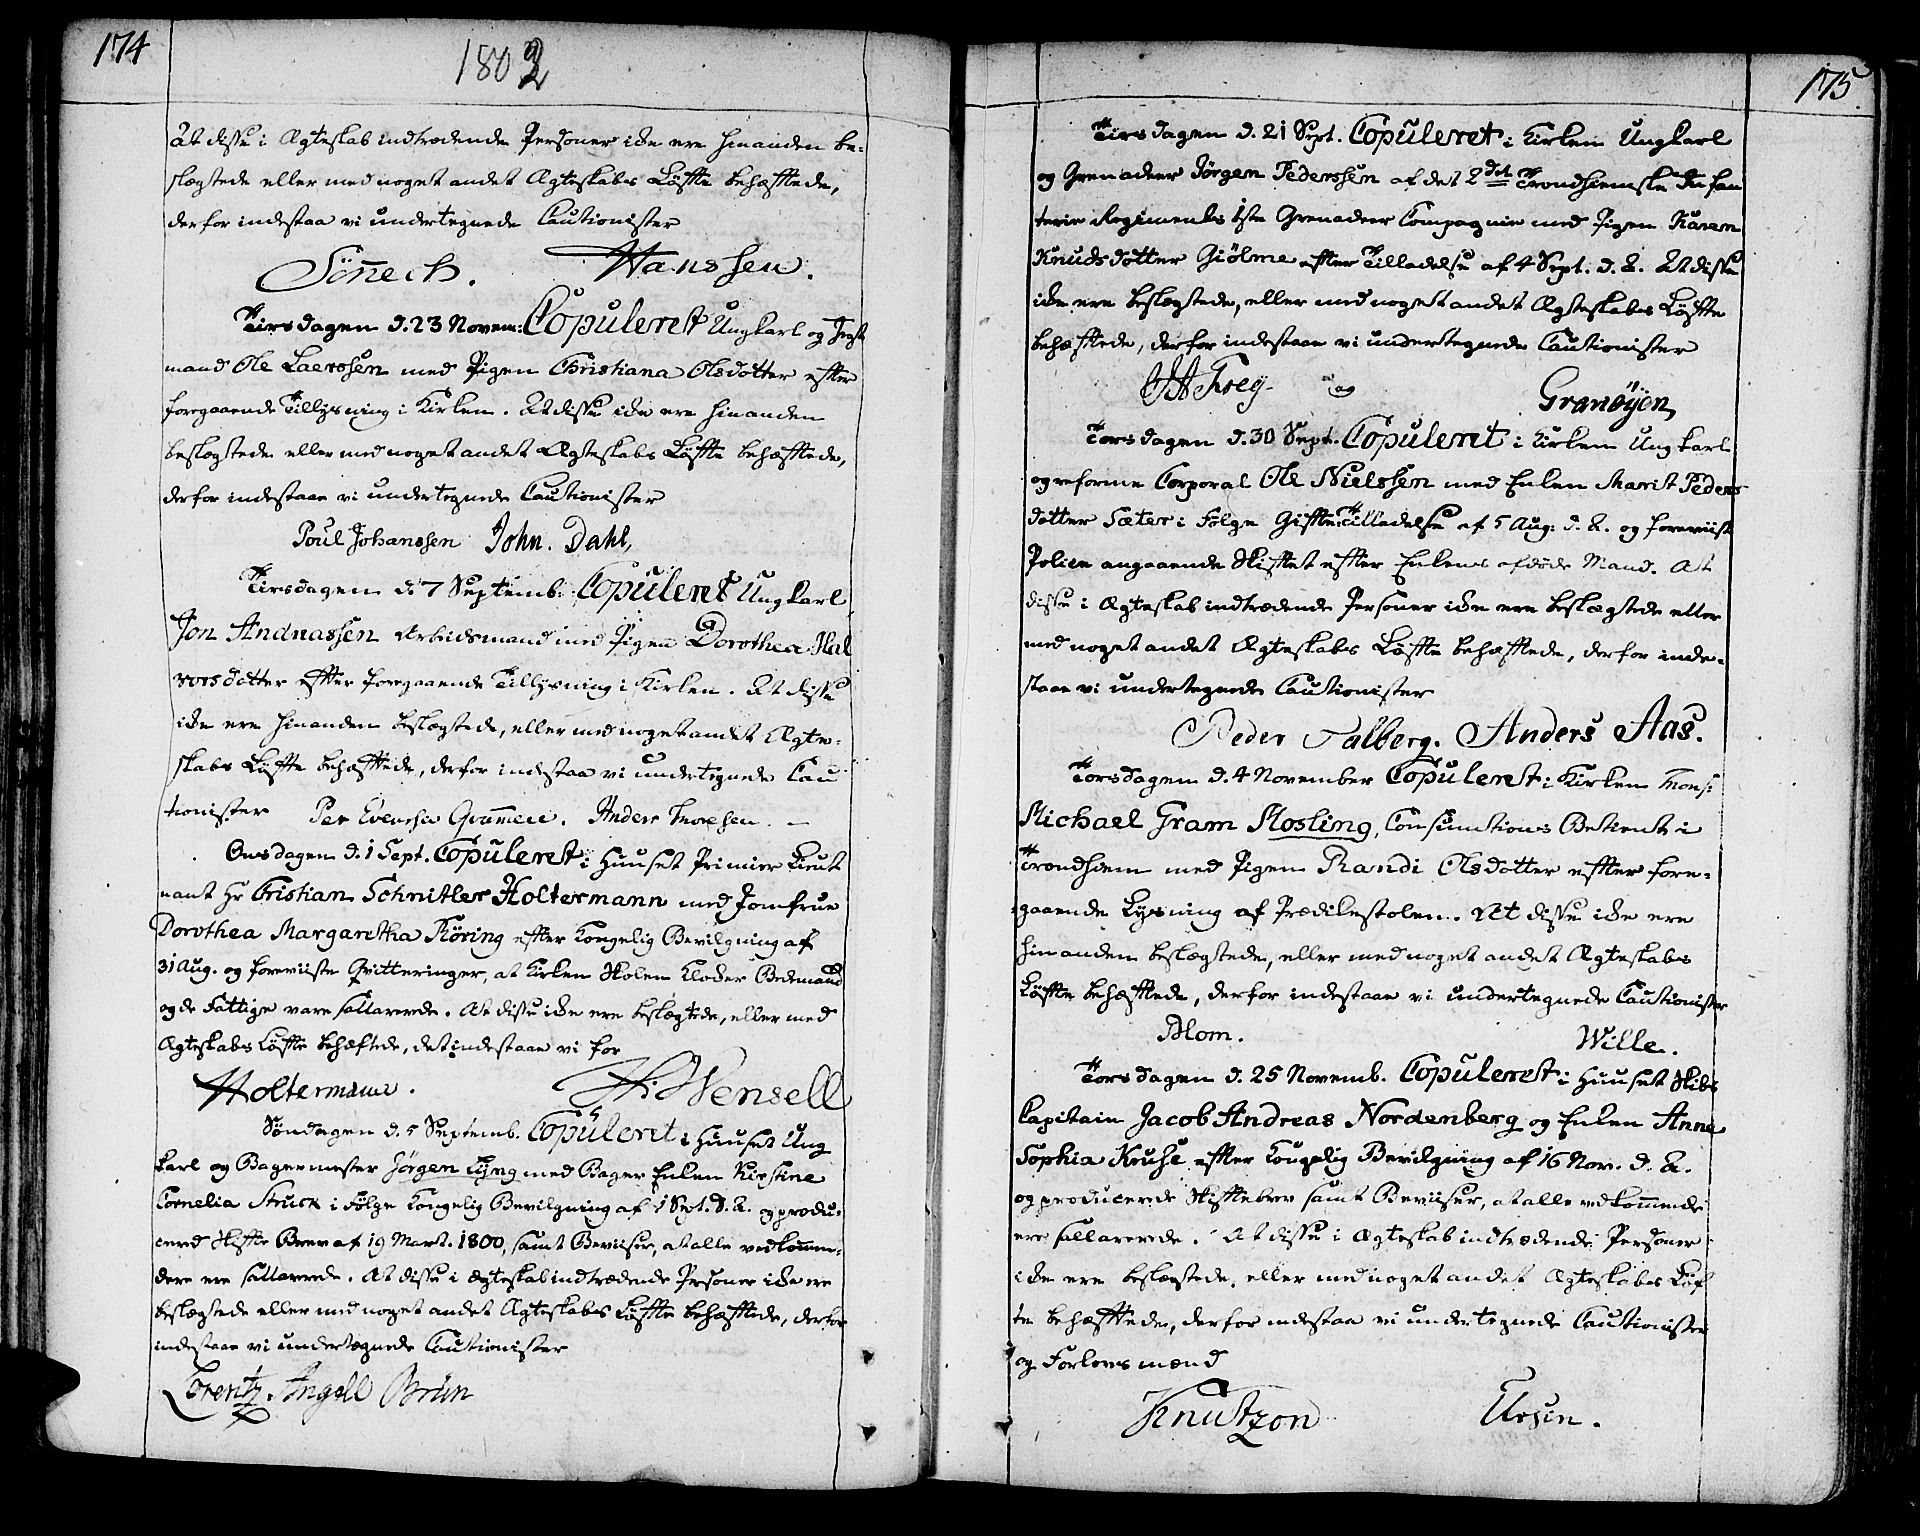 174
1802
At disse i Ægteskab indtrædende Personer ikke ere hinanden be-
slægtede eller med noget andet Ægteskabs Løffte behæfftede,
derfor indestaa vi undertegnede Cautionister
Hanssen.
Tirsdagen d. 23 Novem: Copuleret Ungkarl og
mand Ole Laerssen med Pigen Christiana Olsdotter effter
foregaaende Tillysning i Kirken. At disse ikke ere hinanden
beslægtede eller med noget andet Ægteskabs Løffte behæfftede,
derfor indestaae vi undertegnede Cautionister
Poul Johanssen John. Dahl,
Tirsdagen d. 7 Septemb: Copuleret Ungkarl
Jon Andreassen Arbeidsmand med Pigen Dorothea Hal
vorsdotter effter foregaaende Tillysning i Kirken. At disse
ikke ere hinanden beslægtede, eller med noget andet Ægte-
skabs Løffte behæfftede, derfor indestaa vi undertegnede Cau
tionister Per Evensen Anders Thoresen.
Onsdagen d. 1 Sept. Copuleret i Huuset Premier Lieut
nant Hr Cristian Schnitler Holtermann med Jomfrue
Dorothea Margaretha Køring effter Kongelig Bevilgning af
31 Aug. og foreviiste Qvitteringer, at Kirken Skolen Klokker Bedemand
og de Fattige vare sallarerede. At disse ikke ere beslægtede, eller med
Ægteskabs Løffte behæftede, det indestaae vi for
Holtermann. H. Wensell
Søndagen d. 5 Septemb. Copuleret i Huuset Ung
karl og Bagermester Jørgen Lyng med Bager Enken Kirstine
Cornelia Struck i Følge Kongelig Bevilgning af 1 Sept. d. A. og produ-
cered Skiffte Brev af 19 Mart. 1800, samt Beviiser, at alle vedkomme-
dere ere sallarerede. At disse i Ægteskab indtrædende Personer ikke ere
beslægtede eller med noget andet Ægteskabs Løffte behæfftede, derfor
indestaae vi undertegnede Cautionister
Lorentz Angell Brun
175.
Tirsdagen d. 21 Sept. Copuleret i Kirken Ungkarl
og Grenadeer Jørgen Pederssen af det 2det Trondhiemske Infan
terie Regiments 1ste Grenadeer Compagnie med Pigen Karen
Knudsdotter Giølme effter Tilladelse af 4 Sept. d. A. At disse
ikke ere beslægtede, eller med noget andet Ægteskabs Løffte
behæfftede, derfor indestaae vi undertegnede Cautionister
og Granøyen,
Torsdagen d. 30 Sept. Copuleret i Kirken Ungkarl
og reforme Corporal Ole Nielssen med Enken Marit Peders
dotter Sæter i Følge Giffte Tilladelse af 5 Aug: d. A. og foreviist
Police angaaende Skifftet effter Enkens afdøde Mand. At
disse i Ægteskab indtrædende Personer ikke ere beslægtede eller
med noget andet Ægteskabs Løffte behæfftede, derfor inde-
staae vi undertegnede Cautionister
Peder Falberg. Anders Aas.
Torsdagen d. 4 November Copuleret i Kirken Mons:
Michael Gram Mosling, Consumtions Betient i
Trondhiem med Pigen Randi Olsdotter effter fore-
gaaende Lysning af Prædikestolen. At disse ikke ere
hinanden beslægtede, eller med noget andet Ægteskabs
Løffte behæfftede, derfor indestaae vi undertegnede Cautionister
Blom. Wille.
Torsdagen d. 25 Novemb. Copuleret i Huuset Skibs
Capitain Jacob Andreas Nordenberg og Enken Anne
Sophia Kruse effter Kongelig Bevilgning af 16 Nov. d. A.
og producerede Skifftebrev samt Beviiser, at alle vedkommende
ere sallarerede. At disse i Ægteskab indtrædende Personer
ikke ere beslægtede, eller med noget andet Ægteskabs Løf
te behæfftede, derfor indestaa vi undertegnede Cautionister
og Forlovs mænd
Knutzon